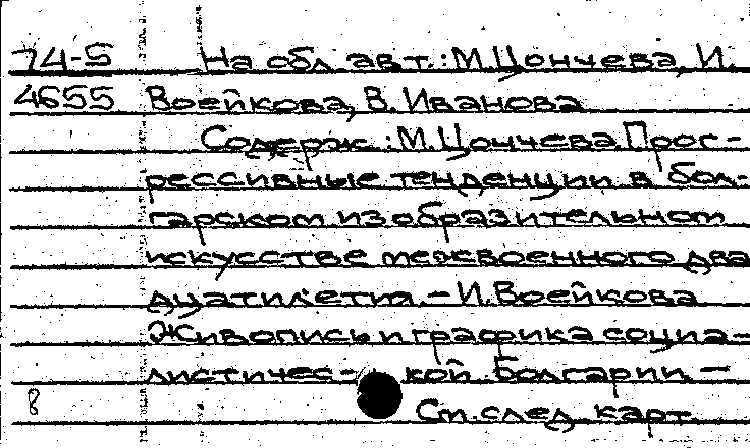 74-5 На обл. авт.: М. Цончева, И.
4655 Воейкова, В. Иванова
Содерж.: М. Цончева Прог-
рессивные тенденции в бол-
гарском изобразительном
искусстве межвоенного два
дцатилетия. - И. Воейкова
Живопись и графика социа-
листичес- кой Болгарии. -
8 См. след. карт.